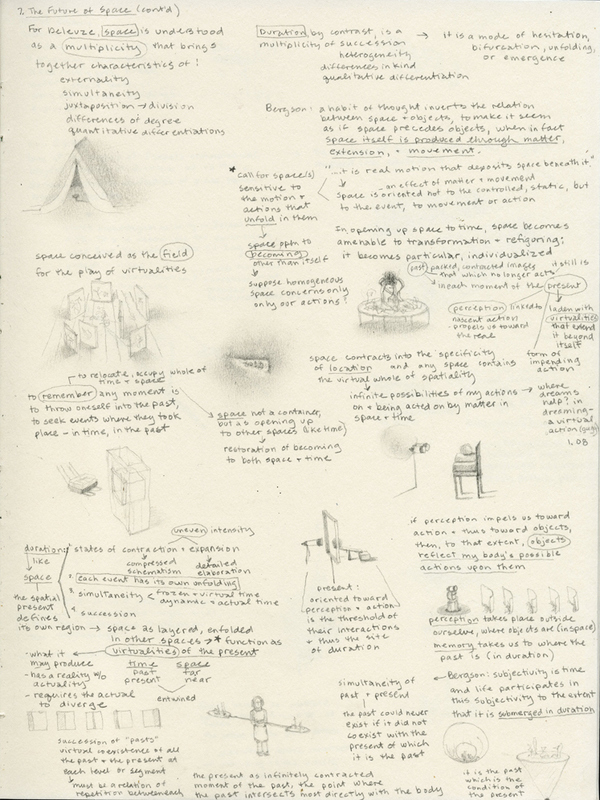 2. The Future of Space (cont'd)
For Deleuze, space is understood
as a multiplicity that brings
together characteristics of:
externality
simultaneity
juxtaposition → division
differences of degree
quantitative differentiations
Duration by contrast, is a →
multiplicity of succession
heterogeneity
differences in kind
qualitative differentiation
it is a mode of hesitation,
bifurcation, unfolding,
or emergence
Bergson: a habit of thought inverts the relation
between space + objects, to make it seem
as if space precedes objects, when in fact
space itself is produced through matter,
extension, + movement.
"...it is real motion that deposits space beneath it."
- an effect of matter + movement
space is oriented not to the controlled, static, but
to the event, to movement or action
* call for space(s)
sensitive to
the motion +
actions that
unfold in them
space open to
becoming
other than itself
suppose homogeneous
space concerns only
our actions?
In opening up space to time, space becomes
amenable to transformation + refiguring;
it becomes particular, individualized
past
that which no longer acts
it still is
in each moment of the present
perception linked to
nascent action
- propels us toward
the real
laden with
virtualities
that extend
it beyond
itself
form of
impending
action
space conceived as the field
for the play of virtualities
to relocate, occupy whole of
time + space
to remember any moment is
to throw oneself into the past,
to seek events where they took
place - in time, in the past
space not a container,
but as opening up
to other spaces (like time)
restoration of becoming
to both space + time
space contracts into the specificity
of location and any space contains
the virtual whole of spatiality
infinite possibilities of my actions →
on + being acted on by matter in
space + time
where
dreams
help? in
dreaming-
a virtual
action
1.08
uneven intensity
duration: states of contraction + expansion
like
space
compressed
schematism
detailed
elaboration
each event has its own unfolding
simultaneity < frozen + virtual time
dynamic + actual time
succession
the spatial
present
defines
its own region → space as layered, enfolded
in other spaces → * function as
virtualities of the present
- what it
may produce
- has a reality w/o
actuality
- requires the actual
to diverge
time space
past far
present near
entwined
present:
oriented toward
perception + action
is the threshold of
their interactions
+ thus the site
of duration
if perception impels us toward
action + thus toward objects,
then, to that extent, objects
reflect my body's possible
actions upon them
perception takes place outside
ourselves, where objects are (in space)
memory takes us to where the
past is (in duration)
Bergson: subjectivity is time
and life participates in
this subjectivity to the extent
that it is submerged in duration
simultaneity of
past + present
the past could never
exist if it did not
coexist with the
present of which
it is the past
succession of "pasts"
virtual coexistence of all
the past + the present at
each level or segment
must be a relation of
repetition between each
the present as infinitely contracted
moment of the past, the point where
the past intersects most directly with the body
it is the past
which is the
condition of
the present